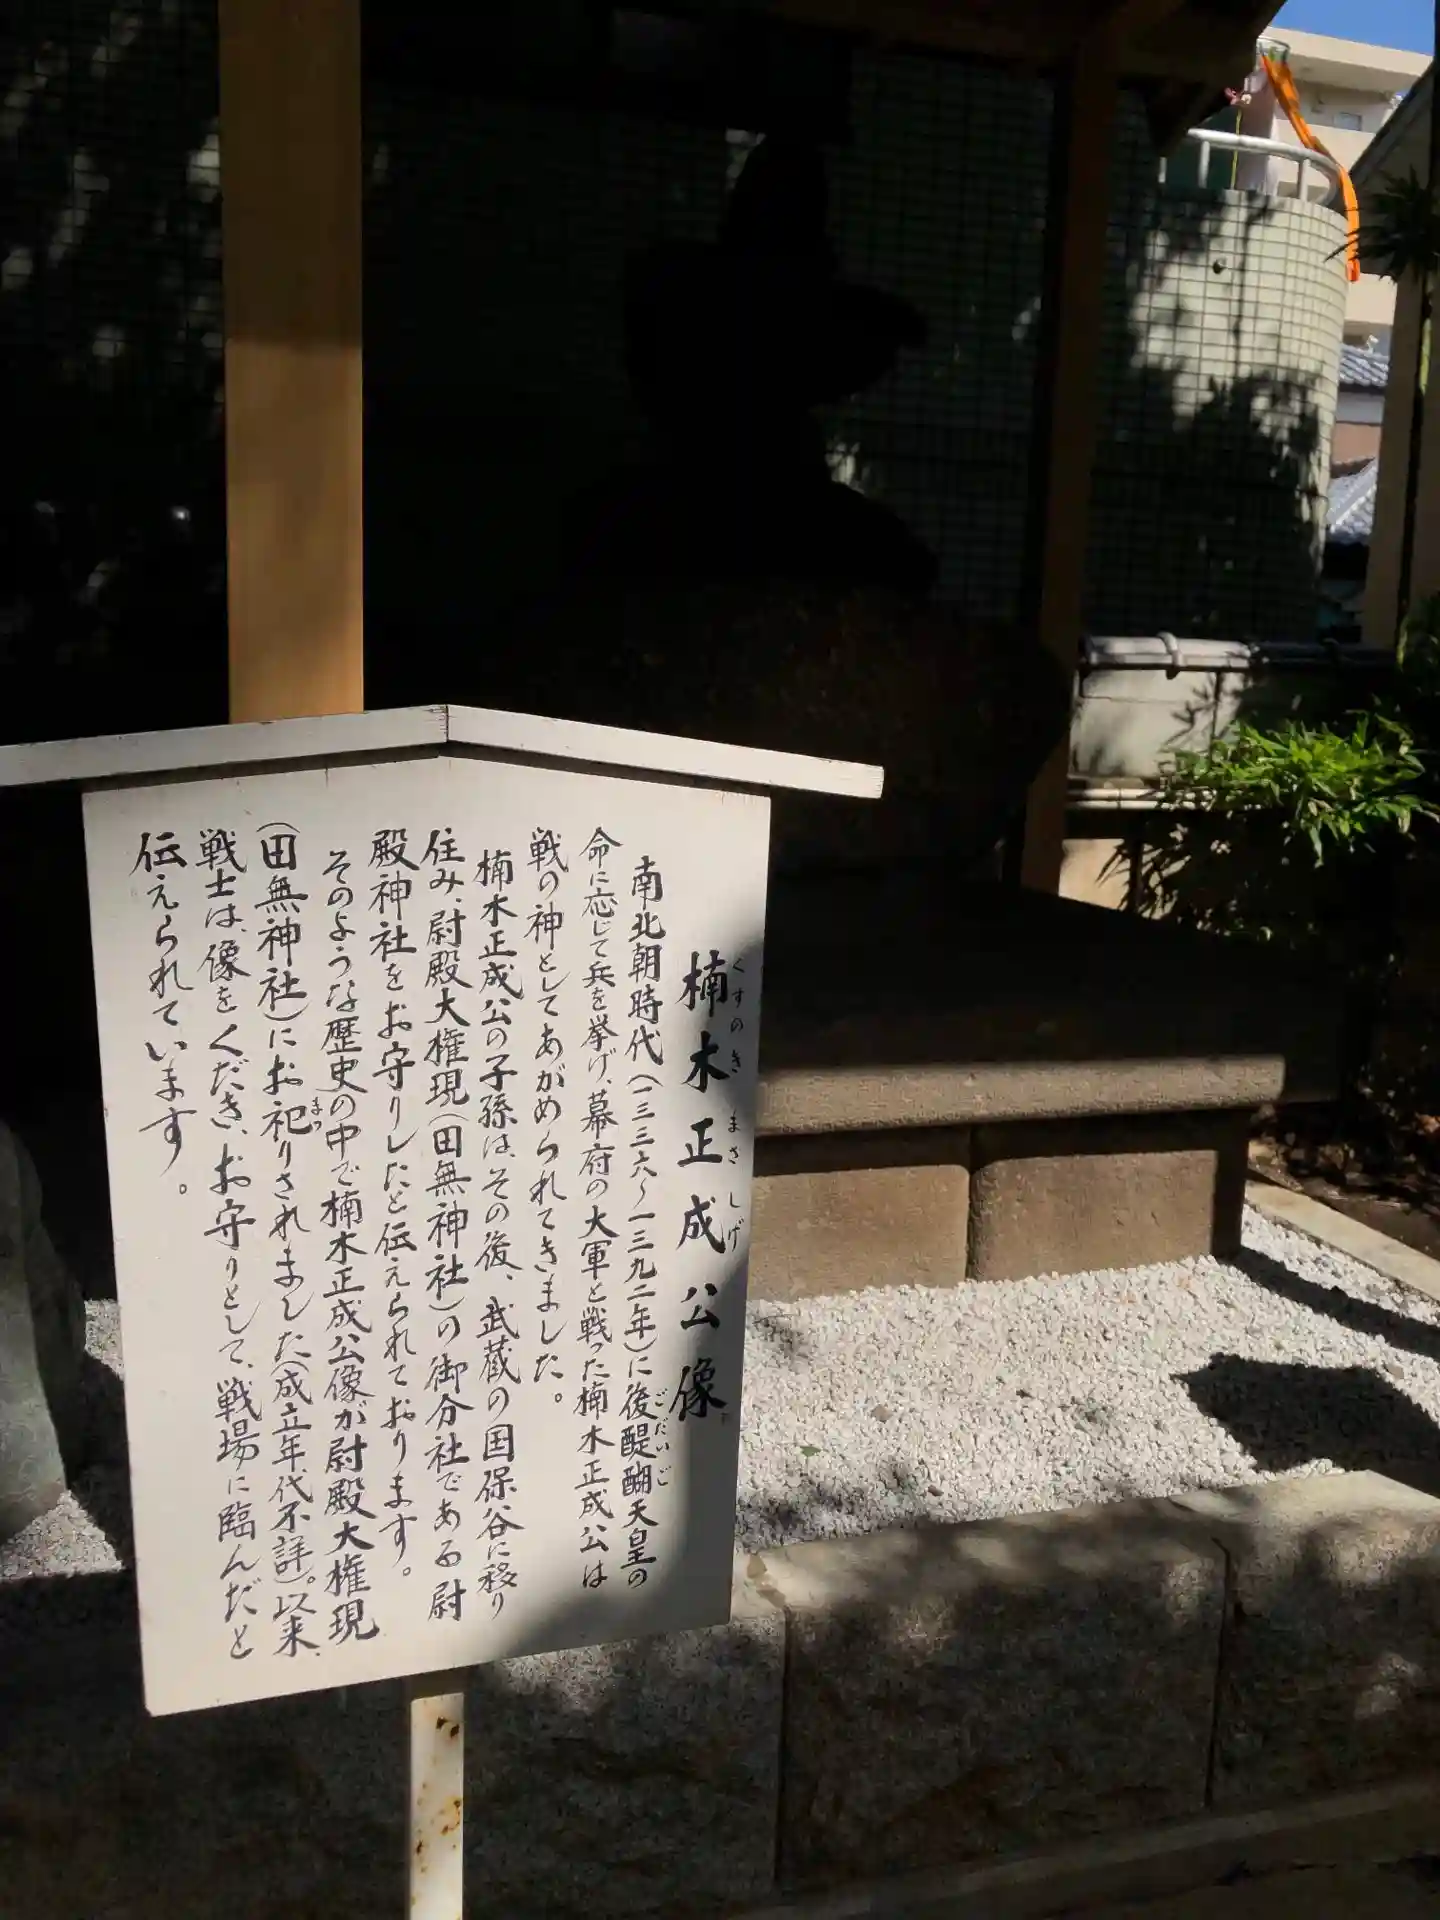 楠木正成公像
くすのき まさしげ
南北朝時代（一三三六〜一三九二年）に後醍醐天皇の
ごだいご
命に応じて兵を挙げ、幕府の大軍と戦った楠木正成公は
戦の神としてあがめられてきました。
楠木正成公の子孫は、その後、武蔵の国保谷に移り
住み、尉殿大権現（田無神社）の御分社である尉
殿神社をお守りしたと伝えられております。
そのような歴史の中で楠木正成公像が尉殿大権現
（田無神社）にお祀りされました（成立年代不詳）。以来、
まつ
戦士は、像をくだき、お守りとして、戦場に臨んだと
伝えられています。